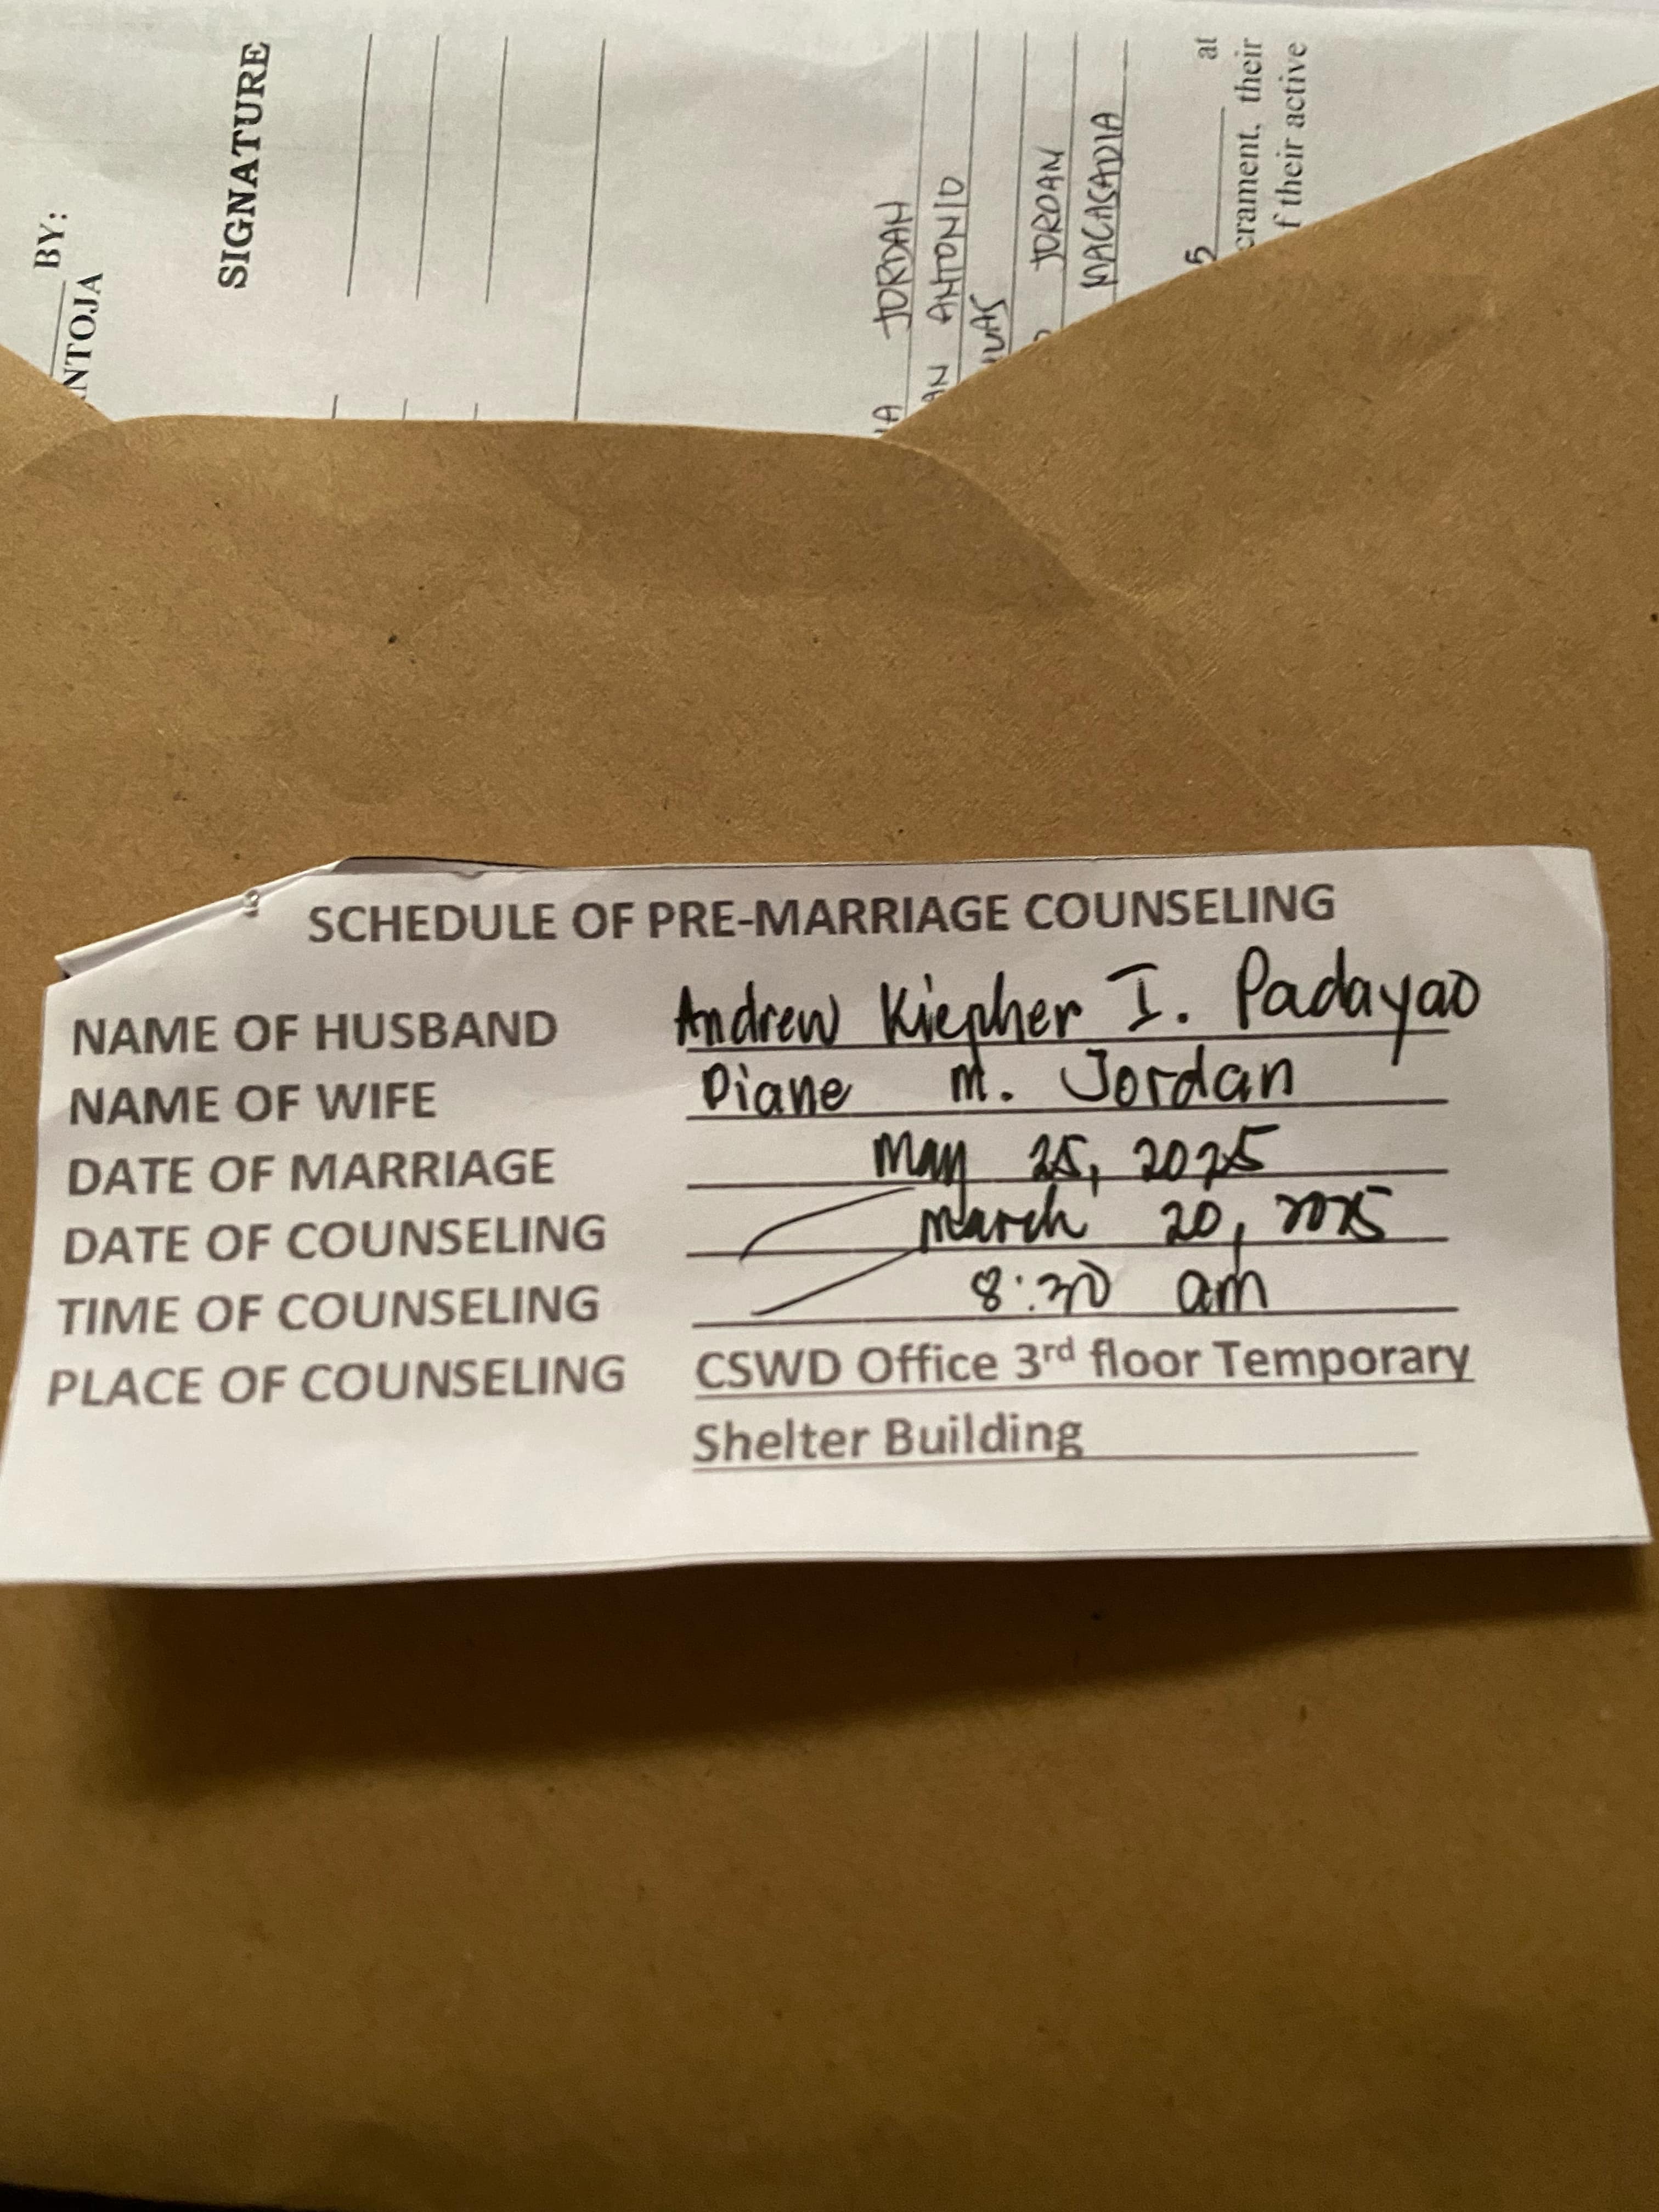 BY:
NTOJA
SIGNATURE
JORDAN
AN ANTONIO
JORDAN
MACASADIA
5 at
crament, their
f their active
SCHEDULE OF PRE-MARRIAGE COUNSELING
NAME OF HUSBAND Andrew Kiepher I. Padayao
NAME OF WIFE Diane M. Jordan
DATE OF MARRIAGE May 25, 2025
DATE OF COUNSELING March 20, 2025
TIME OF COUNSELING 8:30 am
PLACE OF COUNSELING CSWD Office 3rd floor Temporary
Shelter Building